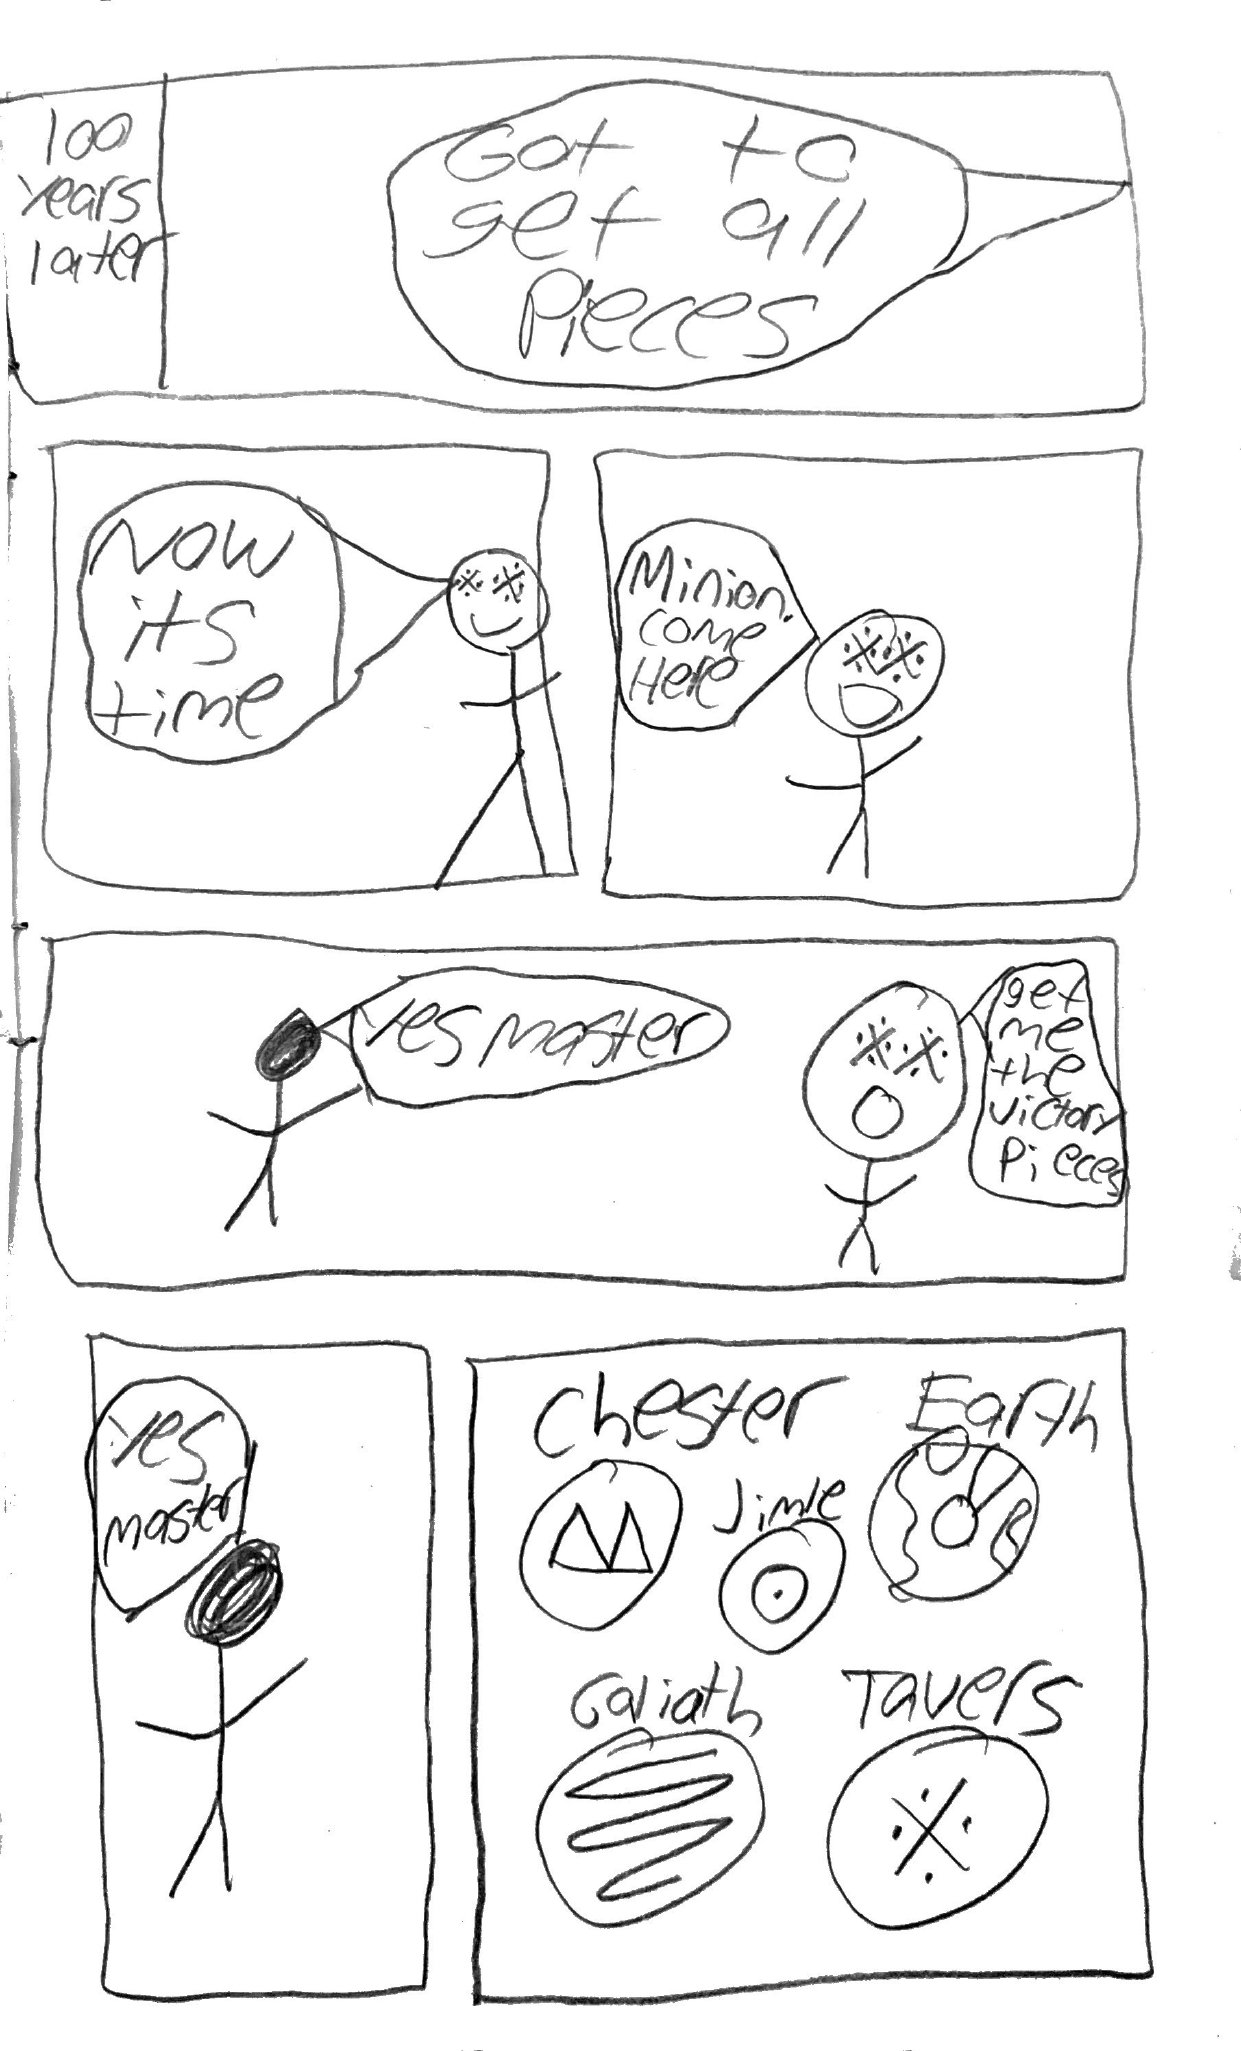 100
years
later
Got to
get all
Pieces
Now
its
time
Minion
come
Here
Yes master
get
me
the
victory
Pieces
Yes
master
Chester
Earth
Jimle
Goliath
Tavers